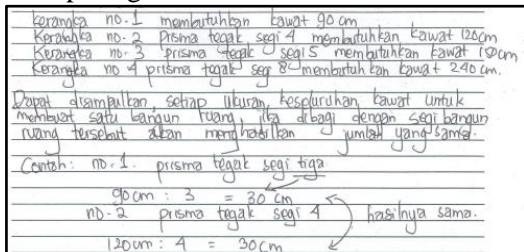 Kerangka no. 1 membutuhkan kawat 90 cm
Kerangka no. 2 Prisma tegak segi 4 membutuhkan kawat 120cm
Kerangka no. 3 prisma tegak segi 5 membutuhkan kawat 150cm
Kerangka no 4 prisma tegak seg 8 membutuhkan kawat 240 cm.
Dapat disimpulkan, setiap ukuran keseluruhan kawat untuk
membuat satu bangun ruang, jika dibagi dengan segi bangun
ruang tersebut akan menghasilkan jumlah yang sama.
Contoh: no. 1. prisma tegak segi tiga
90 cm : 3 = 30 cm
no. 2 prisma tegak segi 4 hasilnya sama.
120 cm : 4 = 30cm